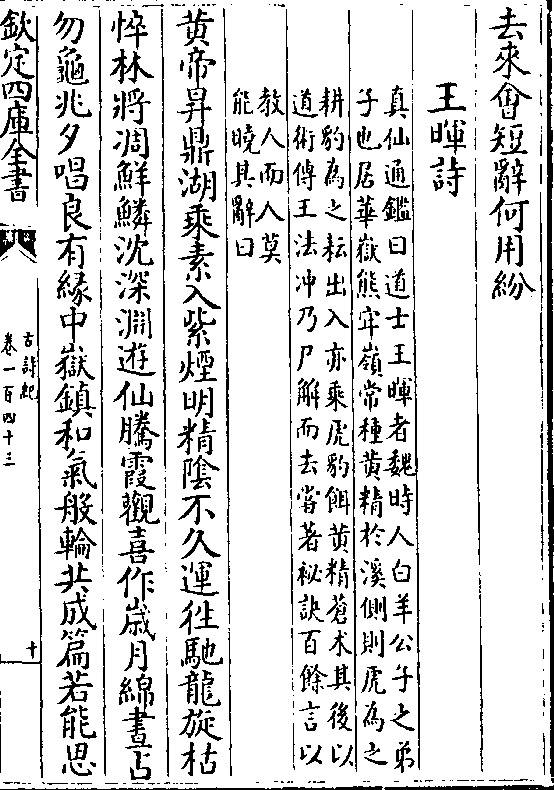 去來會短辭何用紛
王暉詩
真仙通鑑曰道士王暉者魏時人白羊公子之弟
子也居華嶽熊牢嶺常種黄精於溪側則虎為之
耕豹為之耘出入亦乘虎豹餌黄精蒼术其後以
道術傳王法冲乃尸解而去嘗著祕訣百餘言以
教人而人莫
能曉其辭曰
黄帝昇鼎湖乘素入紫煙明精陰不久運往馳龍旋枯
悴林將凋鮮鱗沈深淵遊仙騰霞觀喜作歳月綿晝占
勿龜兆夕唱良有縁中嶽鎮和氣般輪共成篇若能思
欽定四庫全書
古詩紀
卷一百四十三
十